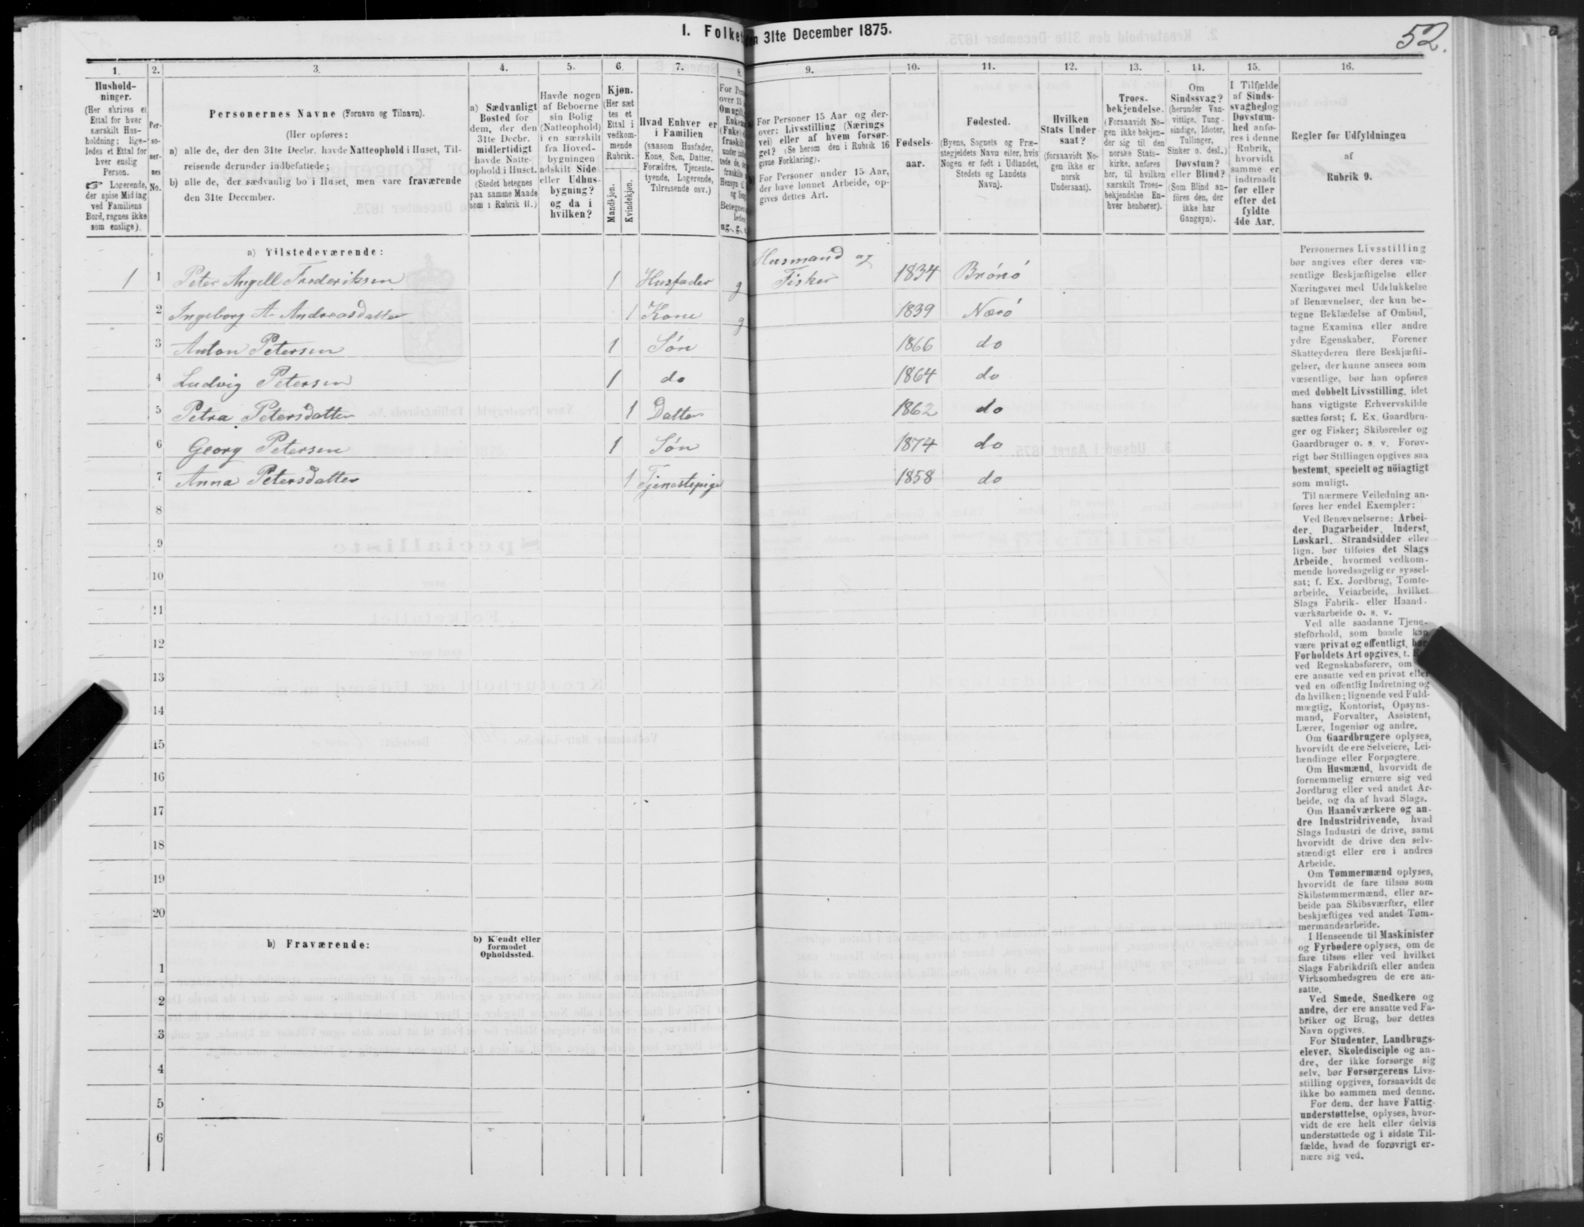 I. Folket
en 31te December 1875.
52.
1.
2.
3.
4.
5.
6.
7.
8.
9.
10.
11.
12.
13.
14.
15.
16.
Hushold-
ninger.
(Her skrives et
Ettal for hver
særskilt Hus-
holdning; lige-
ledes et Ettal for
hver enslig
Person.
☞ Logerende,
der spise Middag
ved Familiens
Bord, regnes ikke
som enslige).
Per-
so-
ner-
nes
No.
Personernes Navne (Fornavn og Tilnavn).
(Her opføres:
a) alle de, der den 31te Decbr. havde Natteophold i Huset, Til-
reisende derunder indbefattede;
b) alle de, der sædvanlig bo i Huset, men vare fraværende
den 31te December.
a) Sædvanligt
Bosted for
dem, der den
31te Decbr.
midlertidigt
havde Natte-
ophold i Huset.
(Stedet betegnes
paa samme Maade
som i Rubrik 11.)
Havde nogen
af Beboerne
sin Bolig
(Natteophold)
i en særskilt
fra Hoved-
bygningen
adskilt Side-
eller Udhus-
bygning?
og da i
hvilken?
Kjøn.
(Her sæt
tes et
Ettal i
vedkom-
mende
Rubrik.
Mandkjøn.
Kvindekjøn.
Hvad Enhver er
i Familien
(saasom Husfader,
Kone, Søn, Datter,
Forældre, Tjeneste-
tyende, Logerende,
Tilreisende osv.)
For Personer 15 Aar og der-
over: Livsstilling (Nærings
vei) eller af hvem forsør-
get? (Se herom den i Rubrik 16
givne Forklaring).
For Personer under 15 Aar,
der have lønnet Arbeide, op-
gives dettes Art.
Fødsels-
aar.
Fødested.
(Byens, Sognets og Præ-
stegjeldets Navn eller, hvis
Nogen er født i Udlandet,
Stedets og Landets
Navn).
Hvilken
Stats Under
saat?
(forsaavidt No-
gen ikke er
norsk
Undersaat).
Troes-
bekjendelse.
(Forsaavidt No-
gen ikke bekjen-
der sig til den
norske Stats-
kirke, anføres
her, til hvilken
særskilt Troes-
bekjendelse En-
hver henhører).
Om
Sindssvag?
(herunder Van-
vittige, Tung-
sindige, Idioter,
Tullinger,
Sinker o. desl.)
Døvstum?
eller Blind?
(Som Blind an-
føres den, der
ikke har
Gangsyn).
I Tilfælde
af Sinds-
svaghed og
Døvstum-
hed anfø-
res i denne
Rubrik,
hvorvidt
samme er
indtraadt
før eller
efter det
fyldte
4de Aar.
Regler for Udfyldningen
af
Rubrik 9.
a) Tilstedeværende:
1 1 Peter Angell Frederiksen 1 Husfader g Husmand og
Fisker 1834 Brönö
2 Ingeborg A. Andreasdatter 1 Kone g 1839 Nærö
3 Anton Petersen 1 Sön 1866 do
4 Ludvig Petersen 1 do 1864 do
5 Petra Petersdatter 1 Datter 1862 do
6 Georg Petersen 1 Sön 1874 do
7 Anna Petersdatter 1 Tjenestepige 1858 do
8
9
10
11
12
13
14
15
16
17
18
19
20
b) Fraværende:
b) Kjendt eller
formodet
Opholdssted.
1
2
3
4
5
6
Personernes Livsstilling
bør angives efter deres væ-
sentlige Beskjæftigelse eller
Næringsvei med Udelukkelse
af Benævnelser, der kun be-
tegne Beklædelse af Ombud,
tagne Examina eller andre
ydre Egenskaber. Forener
Skatteyderen flere Beskjæfti-
gelser, der kunne ansees som
væsentlige, bør han opføres
med dobbelt Livsstilling, idet
hans vigtigste Erhvervskilde
sættes først; f. Ex. Gaardbru-
ger og Fisker; Skibsreder og
Gaardbruger o. s. v. Forøv-
rigt bør Stillingen opgives saa
bestemt, specielt og nöiagtigt
som muligt.
Til nærmere Veiledning an-
føres her endel Exempler:
Ved Benævnelserne: Arbei-
der, Dagarbeider, Inderst,
Løskarl, Strandsidder eller
lign. bør tilføies det Slags
Arbeide, hvormed vedkom-
mende hovedsagelig er syssel-
sat; f. Ex. Jordbrug, Tomte-
arbeide, Veiarbeide, hvilket
Slags Fabrik- eller Haand-
værksarbeide o. s. v.
Ved alle saadanne Tjene-
steforhold, som baade kan
være privat og offentligt, bør
Forholdets Art opgives, f.
ved Regnskabsførere, om
ere ansatte ved en privat eller
ved en offentlig Indretning og
da hvilken; lignende ved Fuld-
mægtig, Kontorist, Opsyns-
mand, Forvalter, Assistent,
Lærer, Ingeniør og andre.
Om Gaardbrugere oplyses,
hvorvidt de ere Selveiere, Lei-
lændinge eller Forpagtere.
Om Husmænd, hvorvidt de
fornemmelig ernære sig ved
Jordbrug eller ved andet Ar-
beide, og da af hvad Slags.
Om Haandværkere og an-
dre Industridrivende, hvad
Slags Industri de drive, samt
hvorvidt de drive den selv-
stændigt eller ere i andres
Arbeide.
Om Tømmermænd oplyses,
hvorvidt de fare tilsøs som
Skibstømmermænd, eller ar-
beide paa Skibsværfter, eller
beskjæftiges ved andet Tøm-
mermandsarbeide.
I Henseende til Maskinister
og Fyrbødere oplyses, om de
fare tilsøs eller ved hvilket
Slags Fabrikdrift eller anden
Virksomhedsgren de ere an-
satte.
Ved Smede, Snedkere og
andre, der ere ansatte ved Fa-
briker og Brug, bør dettes
Navn opgives.
For Studenter, Landbrugs-
elever, Skoledisciple og an-
dre, der ikke forsørge sig
selv, bør Forsørgerens Livs-
stilling opgives, forsaavidt de
ikke bo sammen med denne.
For dem, der have Fattig-
understøttelse, oplyses, hvor-
vidt de ere helt eller delvis
understøttede og i sidste Til-
fælde, hvad de forøvrigt er-
nære sig ved.